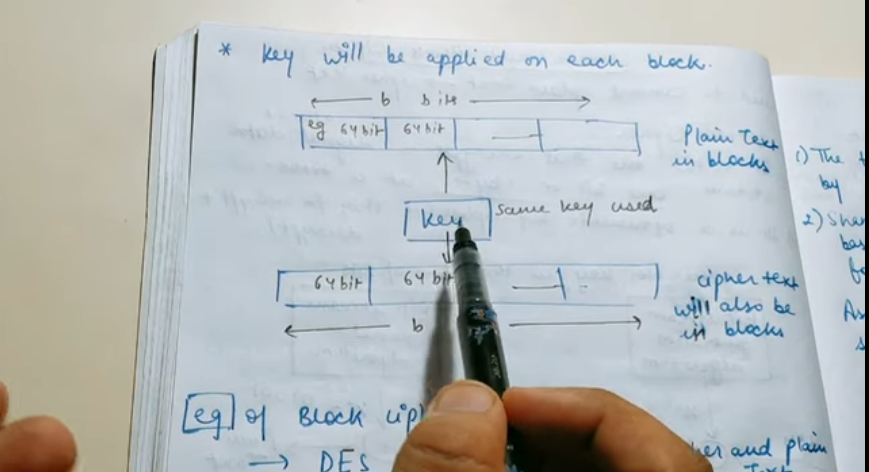 * Key will be applied on each block.
b bits
eg 64 bit 64 bit
Plain Text
in blocks
Key
same key used
64 bit 64 bit
cipher text
will also be
in blocks
b
eg of Block
→ DES
and plain
Text
1) The
by
2)
As